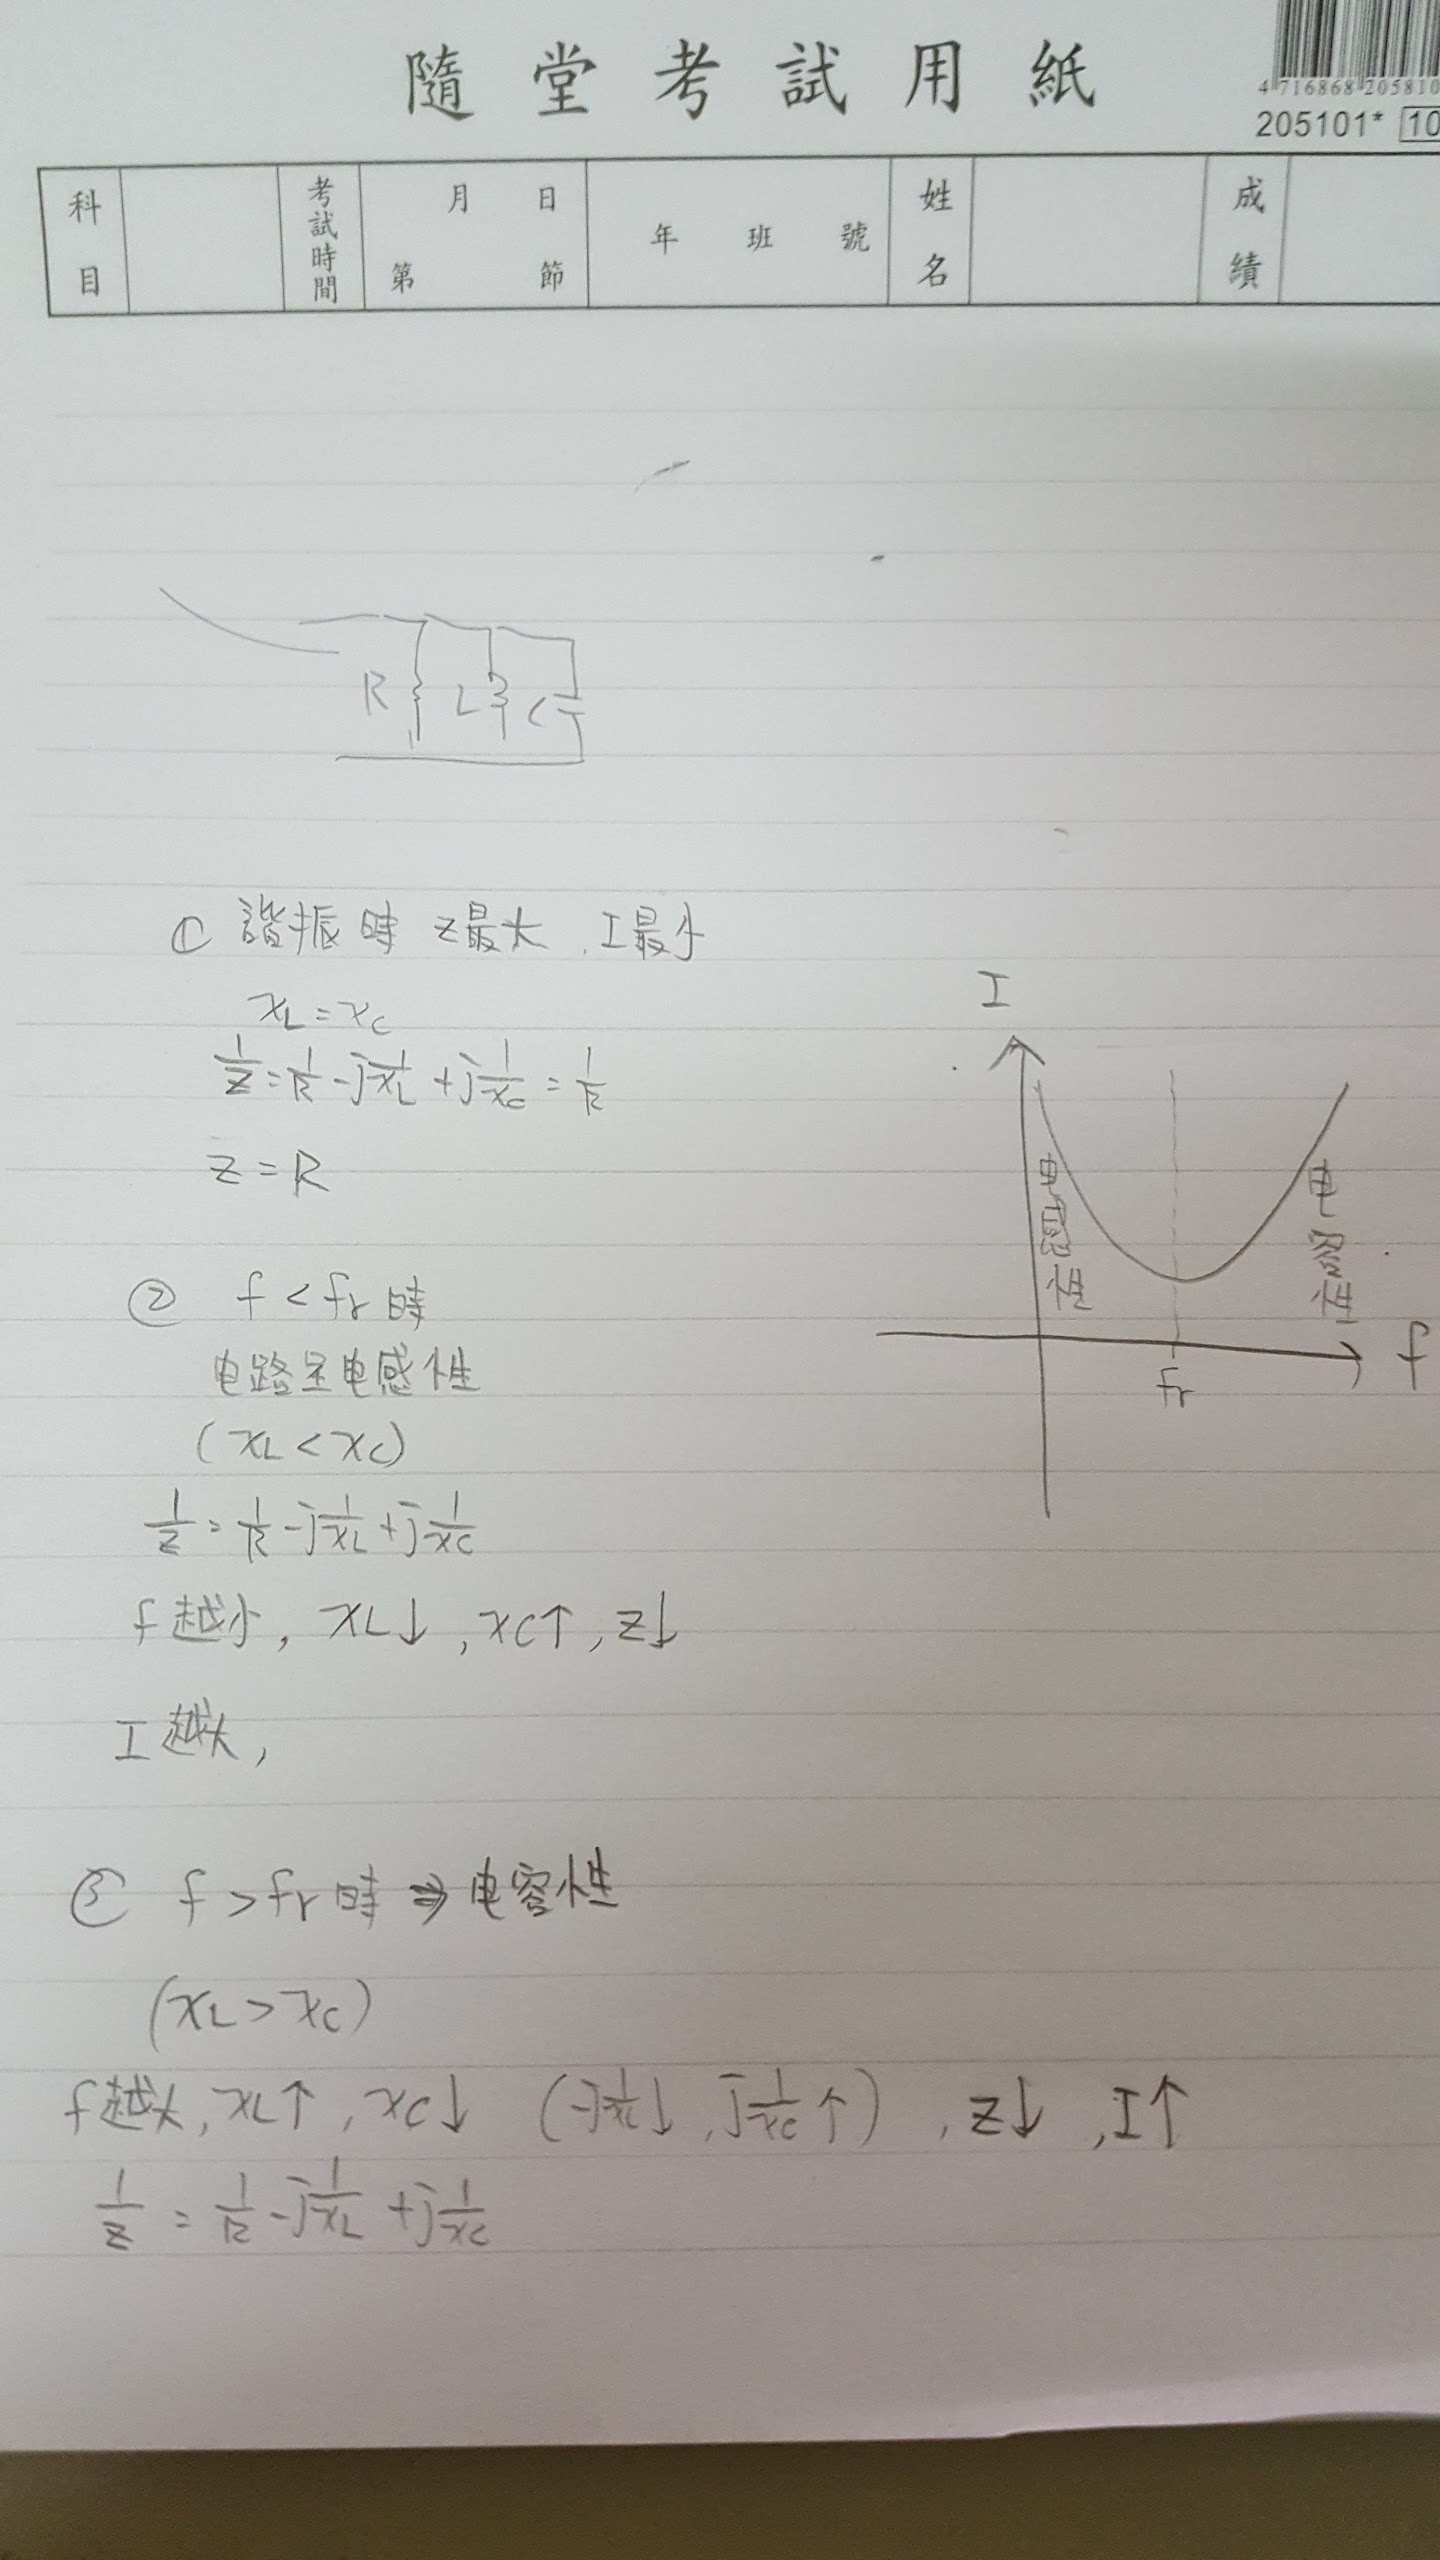 隨堂考試用紙
4 716868 205810
205101* 10
科目 考試時間 月 日 第 節 年 班 號 姓名 成績
R L C
① 諧振時 Z最大, I最小
XL = XC
1/Z = 1/R - j1/XL + j1/XC = 1/R
Z = R
I
电感性
电容性
f
fr
② f < fr 時
电路呈电感性
(XL < XC)
1/Z = 1/R - j1/XL + j1/XC
f 越小, XL↓, XC↑, Z↓
I 越大,
③ f > fr 時 ⇒ 电容性
(XL > XC)
f 越大, XL↑, XC↓ (-j1/XL↓, j1/XC↑), Z↓, I↑
1/Z = 1/R - j1/XL + j1/XC